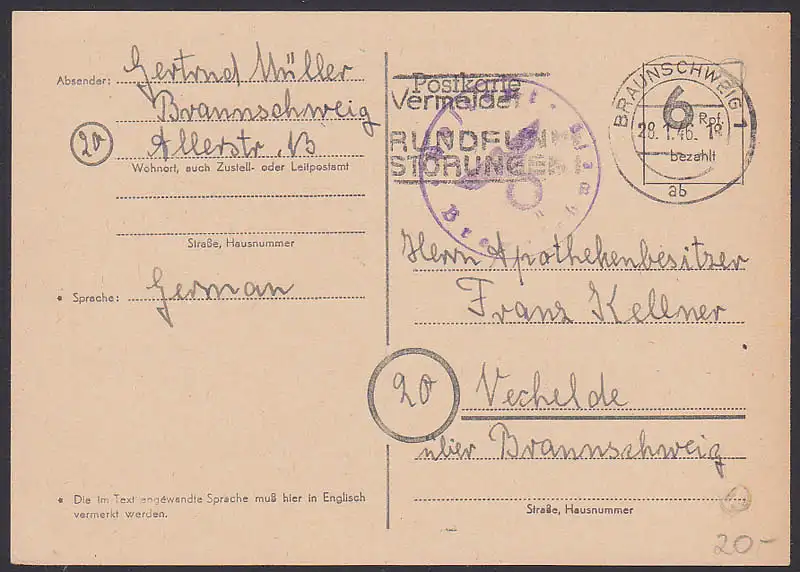 Absender: Gertrud Müller
Braunschweig
20 Allerstr. 13
Wohnort, auch Zustell- oder Leitpostamt
Straße, Hausnummer
* Sprache: German
* Die im Text angewandte Sprache muß hier in Englisch
vermerkt werden.
Postkarte
Vermeidet
RUNDFUNK
STÖRUNGEN
BRAUNSCHWEIG 1
6 Rpf.
28.1.46. 18
bezahlt
ab
Herrn Apothekenbesitzer
Franz Kellner
20 Vechelde
über Braunschweig
Straße, Hausnummer
20.-